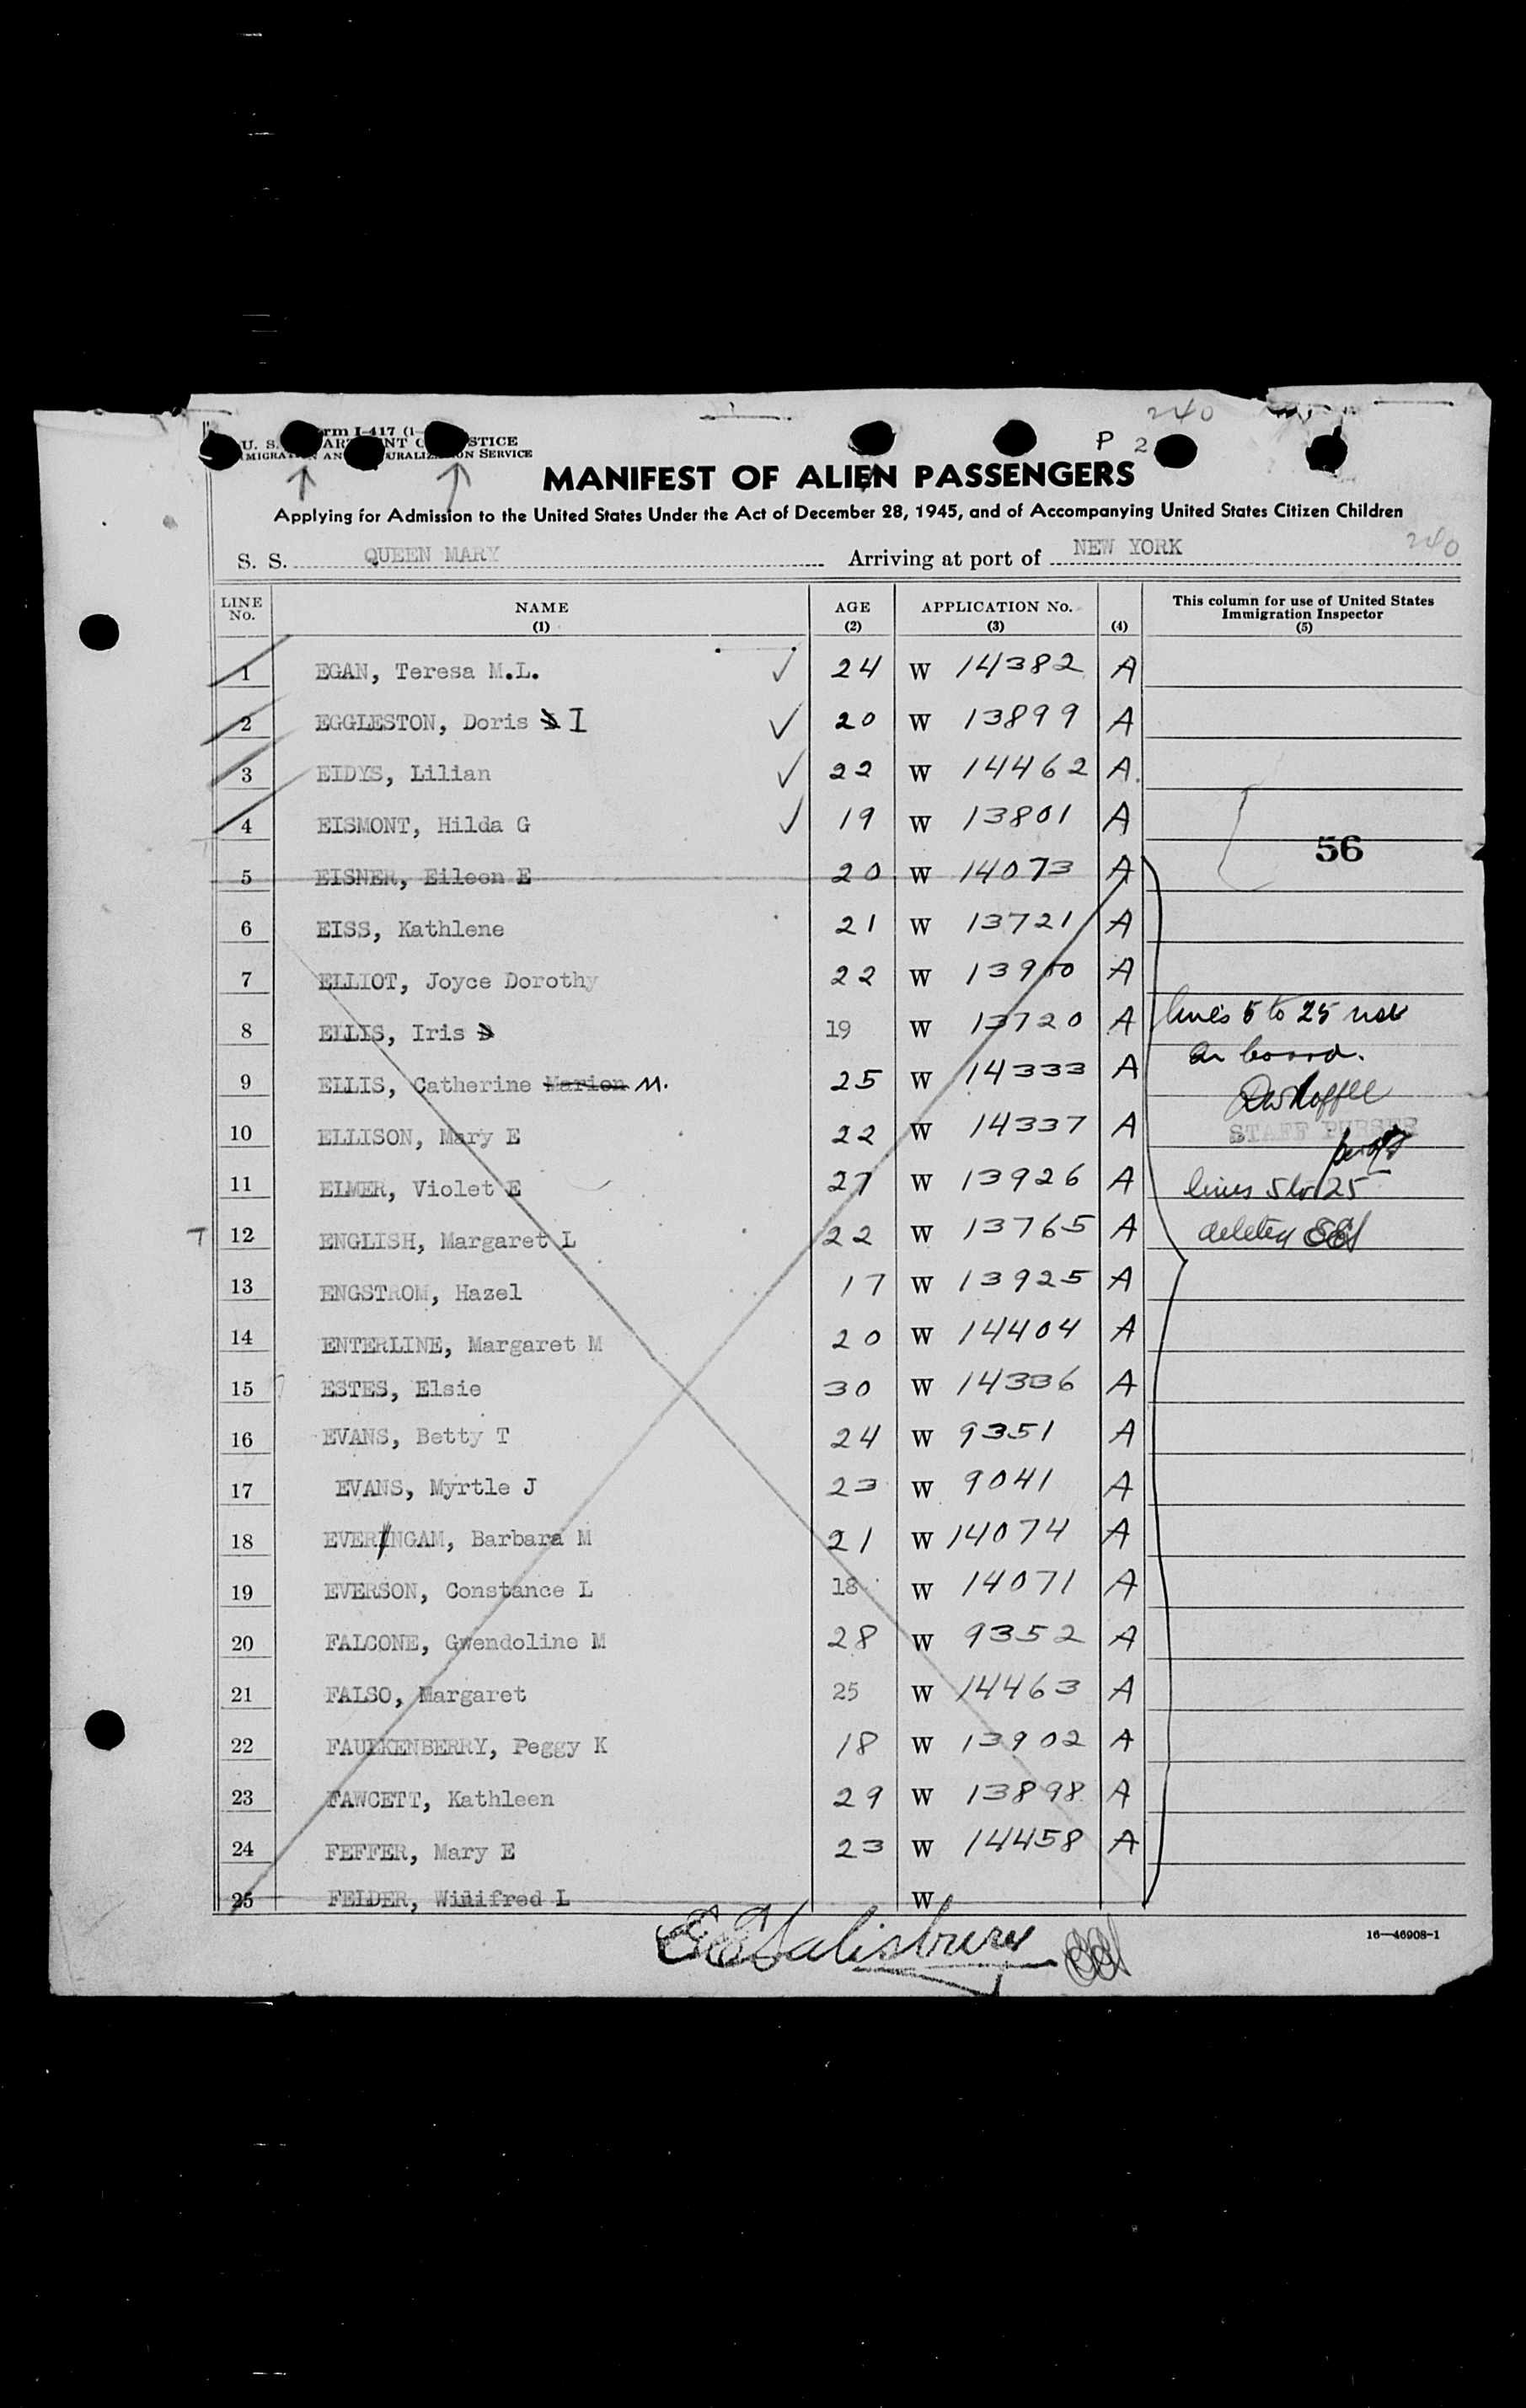 240
Form I-417
P 2
U. S. DEPARTMENT OF JUSTICE
IMMIGRATION AND NATURALIZATION SERVICE
MANIFEST OF ALIEN PASSENGERS
Applying for Admission to the United States Under the Act of December 28, 1945, and of Accompanying United States Citizen Children
S. S. QUEEN MARY Arriving at port of NEW YORK 240
LINE No. NAME (1) AGE (2) APPLICATION No. (3) (4) This column for use of United States Immigration Inspector (5)
1 EGAN, Teresa M.L. ✓ 24 W 14382 A
2 EGGLESTON, Doris I ✓ 20 W 13899 A
3 EIDYS, Lilian ✓ 22 W 14462 A.
4 EISMONT, Hilda G ✓ 19 W 13801 A
56
5 EISNER, Eileen E 20 W 14073 A
6 EISS, Kathlene 21 W 13721 A
7 ELLIOT, Joyce Dorothy 22 W 13900 A
8 ELLIS, Iris 19 W 13720 A lines 5 to 25 not
on board.
9 ELLIS, Catherine Marion M. 25 W 14333 A
10 ELLISON, Mary E 22 W 14337 A STAFF PURSER
11 ELMER, Violet E 27 W 13926 A lines 5 to 25
T 12 ENGLISH, Margaret L 22 W 13765 A deleted EES
13 ENGSTROM, Hazel 17 W 13925 A
14 ENTERLINE, Margaret M 20 W 14404 A
15 ESTES, Elsie 30 W 14336 A
16 EVANS, Betty T 24 W 9351 A
17 EVANS, Myrtle J 23 W 9041 A
18 EVERINGAM, Barbara M 21 W 14074 A
19 EVERSON, Constance L 18 W 14071 A
20 FALCONE, Gwendoline M 28 W 9352 A
21 FALSO, Margaret 25 W 14463 A
22 FAULKENBERRY, Peggy K 18 W 13902 A
23 FAWCETT, Kathleen 29 W 13898 A
24 FEFFER, Mary E 23 W 14458 A
25 FELDER, Winifred L W
EESalisbury EES
16—46908-1